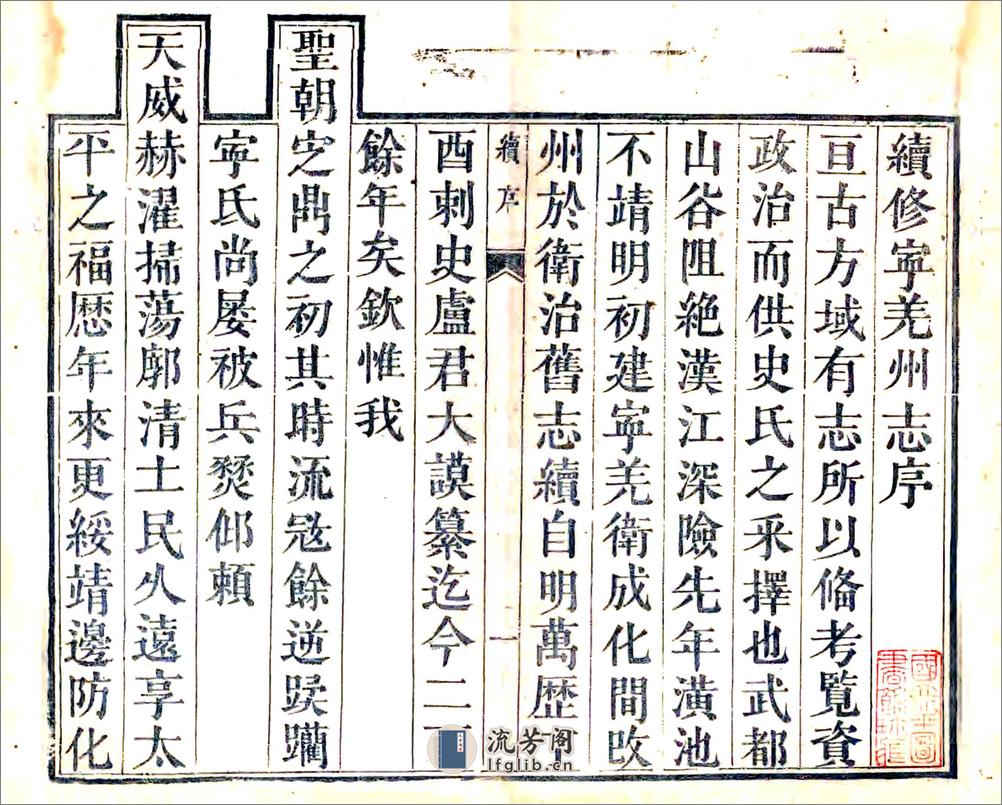 續修寧羌州志序
亘古方域有志所以俻考覧資
政治而供史氏之采擇也武都
山谷阻絶漢江深險先年潢池
不靖明初建寧羌衛成化間改
州於衛治舊志續自明萬歴
續序
一
酉刺史盧君大謨纂迄今二
餘年矣欽惟我
聖朝定鼎之初其時流冦餘逆蹂躪
寧氏尚屡被兵燹仰賴
天威赫濯掃蕩廓清士民久遠享太
平之福歴年來更綏靖邊防化
流芳阁
lfglib.cn